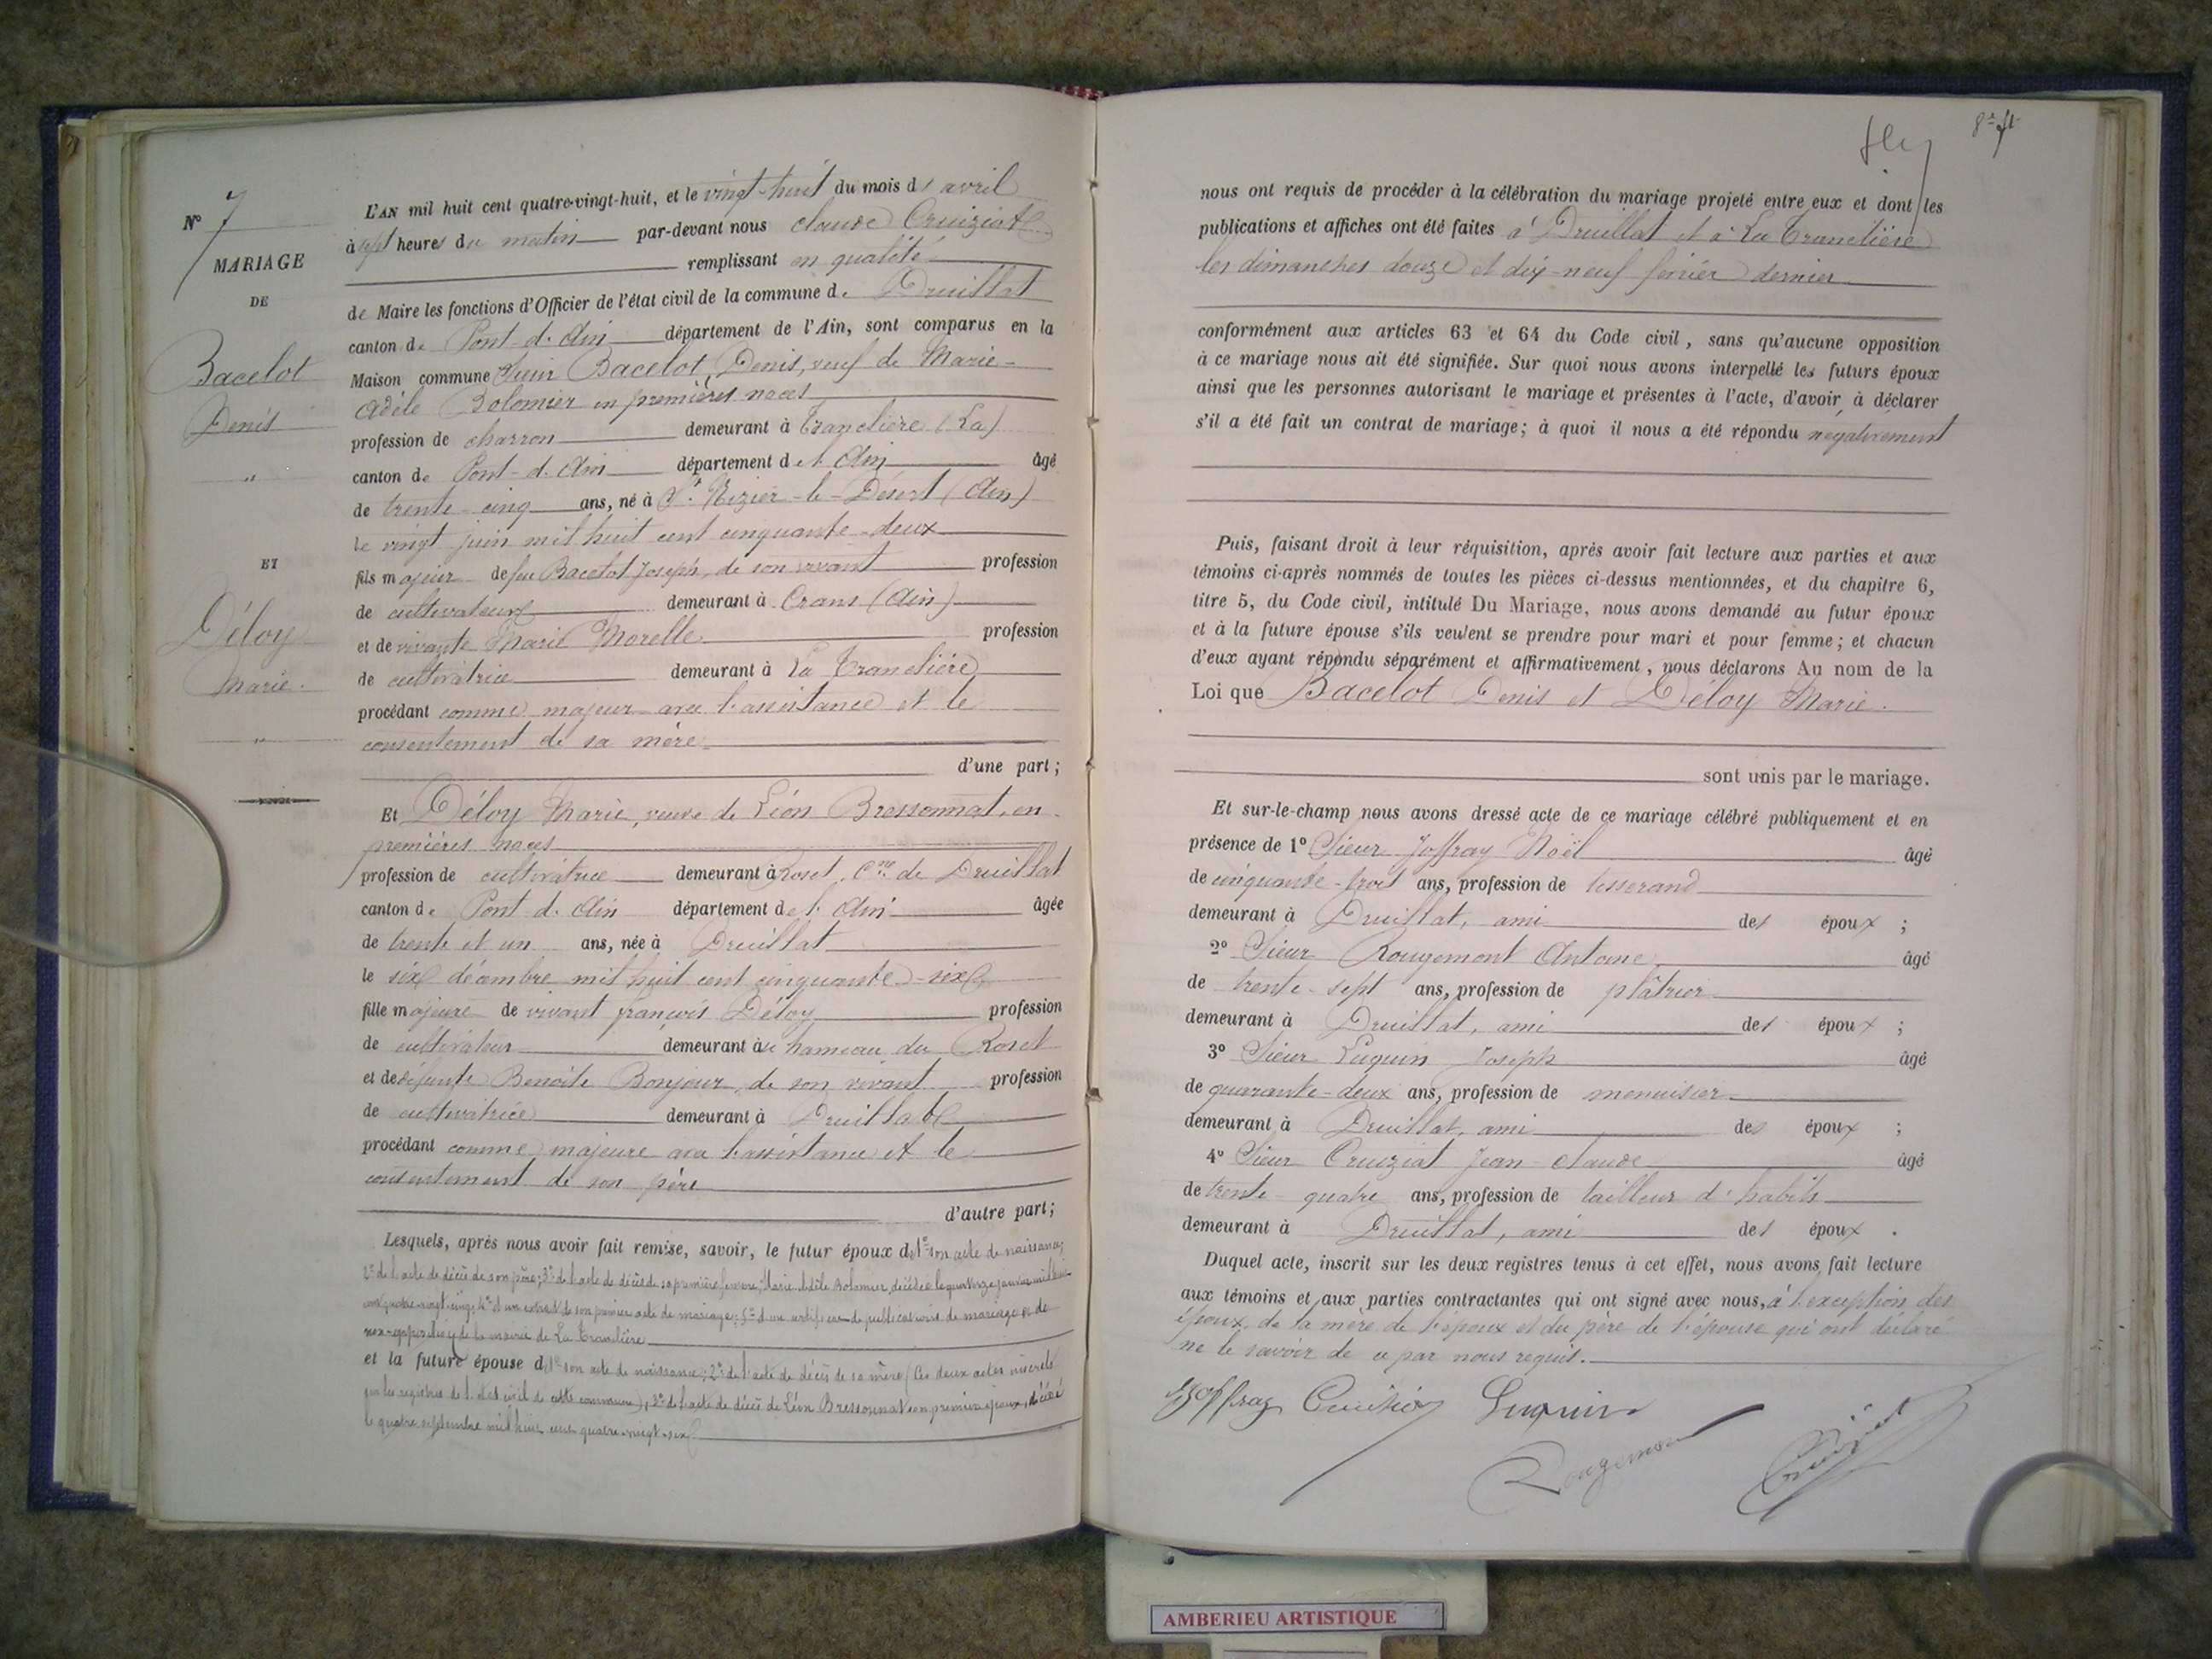 N° 7
MARIAGE
DE
Bacelot
Denis
"
ET
Déloy
Marie.
"
L'AN mil huit cent quatre-vingt-huit, et le vingt-huit du mois d' avril
à sept heures du matin par-devant nous Claude Cruiziat
remplissant en qualité
de Maire les fonctions d'Officier de l'état civil de la commune de Druillat
canton de Pont-d'Ain département de l'Ain, sont comparus en la
Maison commune Sieur Bacelot Denis, veuf de Marie-
Adèle Bolomier en premières noces
profession de charron demeurant à Tranclière (La)
canton de Pont-d'Ain département de l'Ain âgé
de trente-cinq ans, né à St Nizier-le-Désert (Ain)
le vingt juin mil huit cent cinquante-deux
fils majeur de feu Bacelot Joseph, de son vivant profession
de cultivateur demeurant à Crans (Ain)
et de vivante Marie Morelle profession
de cultivatrice demeurant à La Tranclière
procédant comme majeur avec l'assistance et le
consentement de sa mère
d'une part;
Et Déloy Marie, veuve de Léon Bressonnat, en
premières noces
profession de cultivatrice demeurant à Roset, Cne de Druillat
canton de Pont d'Ain département de l'Ain âgée
de trente et un ans, née à Druillat
le six décembre mil huit cent cinquante-six
fille majeure de vivant françois Déloy profession
de cultivateur demeurant au hameau du Roset
et de défunte Benoîte Bonjour, de son vivant profession
de cultivatrice demeurant à Druillat
procédant comme majeure avec l'assistance et le
consentement de son père
d'autre part;
Lesquels, après nous avoir fait remise, savoir, le futur époux de 1° son acte de naissance;
2° de l'acte de décès de son père; 3° de l'acte de décès de sa première femme, Marie Adèle Bolomier, décédée le quatorze janvier mil huit
cent quatre-vingt-cinq; 4° d'un extrait de son premier acte de mariage; 5° d'un certificat de publications de mariage et de
non-opposition de la mairie de La Tranclière
et la future épouse de 1° son acte de naissance; 2° de l'acte de décès de sa mère (Ces deux actes inscrits
sur les registres de l'état civil de cette commune); 3° de l'acte de décès de Léon Bressonnat son premier époux, décédé
le quatre septembre mil huit cent quatre-vingt-six
8e ft
nous ont requis de procéder à la célébration du mariage projeté entre eux et dont les
publications et affiches ont été faites à Druillat et à La Tranclière
les dimanches douze et dix-neuf février dernier
conformément aux articles 63 et 64 du Code civil, sans qu'aucune opposition
à ce mariage nous ait été signifiée. Sur quoi nous avons interpellé les futurs époux
ainsi que les personnes autorisant le mariage et présentes à l'acte, d'avoir à déclarer
s'il a été fait un contrat de mariage; à quoi il nous a été répondu négativement
Puis, faisant droit à leur réquisition, après avoir fait lecture aux parties et aux
témoins ci-après nommés de toutes les pièces ci-dessus mentionnées, et du chapitre 6,
titre 5, du Code civil, intitulé Du Mariage, nous avons demandé au futur époux
et à la future épouse s'ils veulent se prendre pour mari et pour femme; et chacun
d'eux ayant répondu séparément et affirmativement, nous déclarons Au nom de la
Loi que Bacelot Denis et Déloy Marie.
sont unis par le mariage.
Et sur-le-champ nous avons dressé acte de ce mariage célébré publiquement et en
présence de 1° Sieur Joffray Noël âgé
de cinquante-trois ans, profession de tisserand
demeurant à Druillat, ami des époux ;
2° Sieur Rougemont Antoine âgé
de trente-sept ans, profession de plâtrier
demeurant à Druillat, ami des époux ;
3° Sieur Luquin Joseph âgé
de quarante-deux ans, profession de menuisier
demeurant à Druillat, ami des époux ;
4° Sieur Cruiziat Jean-Claude âgé
de trente-quatre ans, profession de tailleur d'habits
demeurant à Druillat, ami des époux .
Duquel acte, inscrit sur les deux registres tenus à cet effet, nous avons fait lecture
aux témoins et aux parties contractantes qui ont signé avec nous, à l'exception des
époux, de la mère de l'époux et du père de l'épouse qui ont déclaré
ne le savoir de ce par nous requis.
Joffray Cruiziat Luquin
Rougemont Cruiziat
AMBERIEU ARTISTIQUE